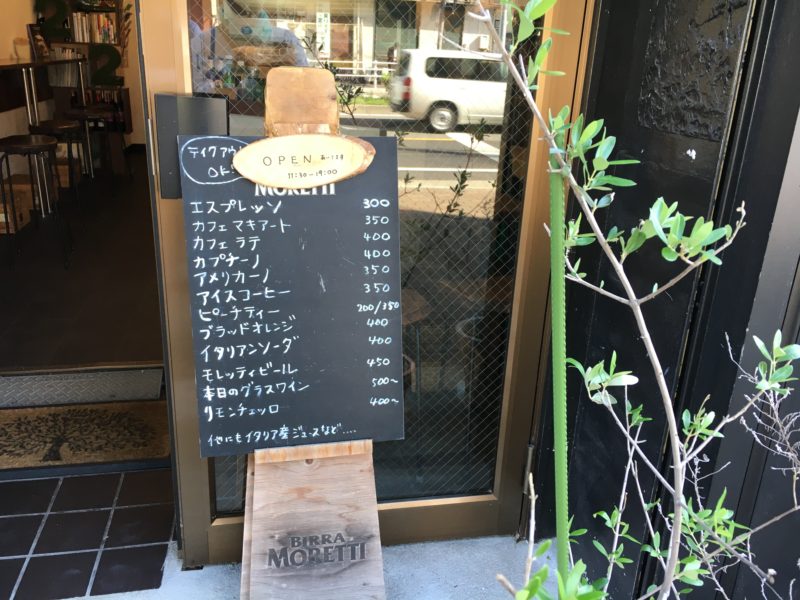 テイクアウ
OK
OPEN
11:30-19:00
MORETTI
エスプレッソ 300
カフェ マキアート 350
カフェ ラテ 400
カプチーノ 400
アメリカーノ 350
アイスコーヒー 350
ピーチティー 200/350
ブラッドオレンジ 400
イタリアンソーダ 400
モレッティビール 450
本日のグラスワイン 500~
リモンチェッロ 400~
他にもイタリア産ジュースなど....
BIRRA
MORETTI
2
2